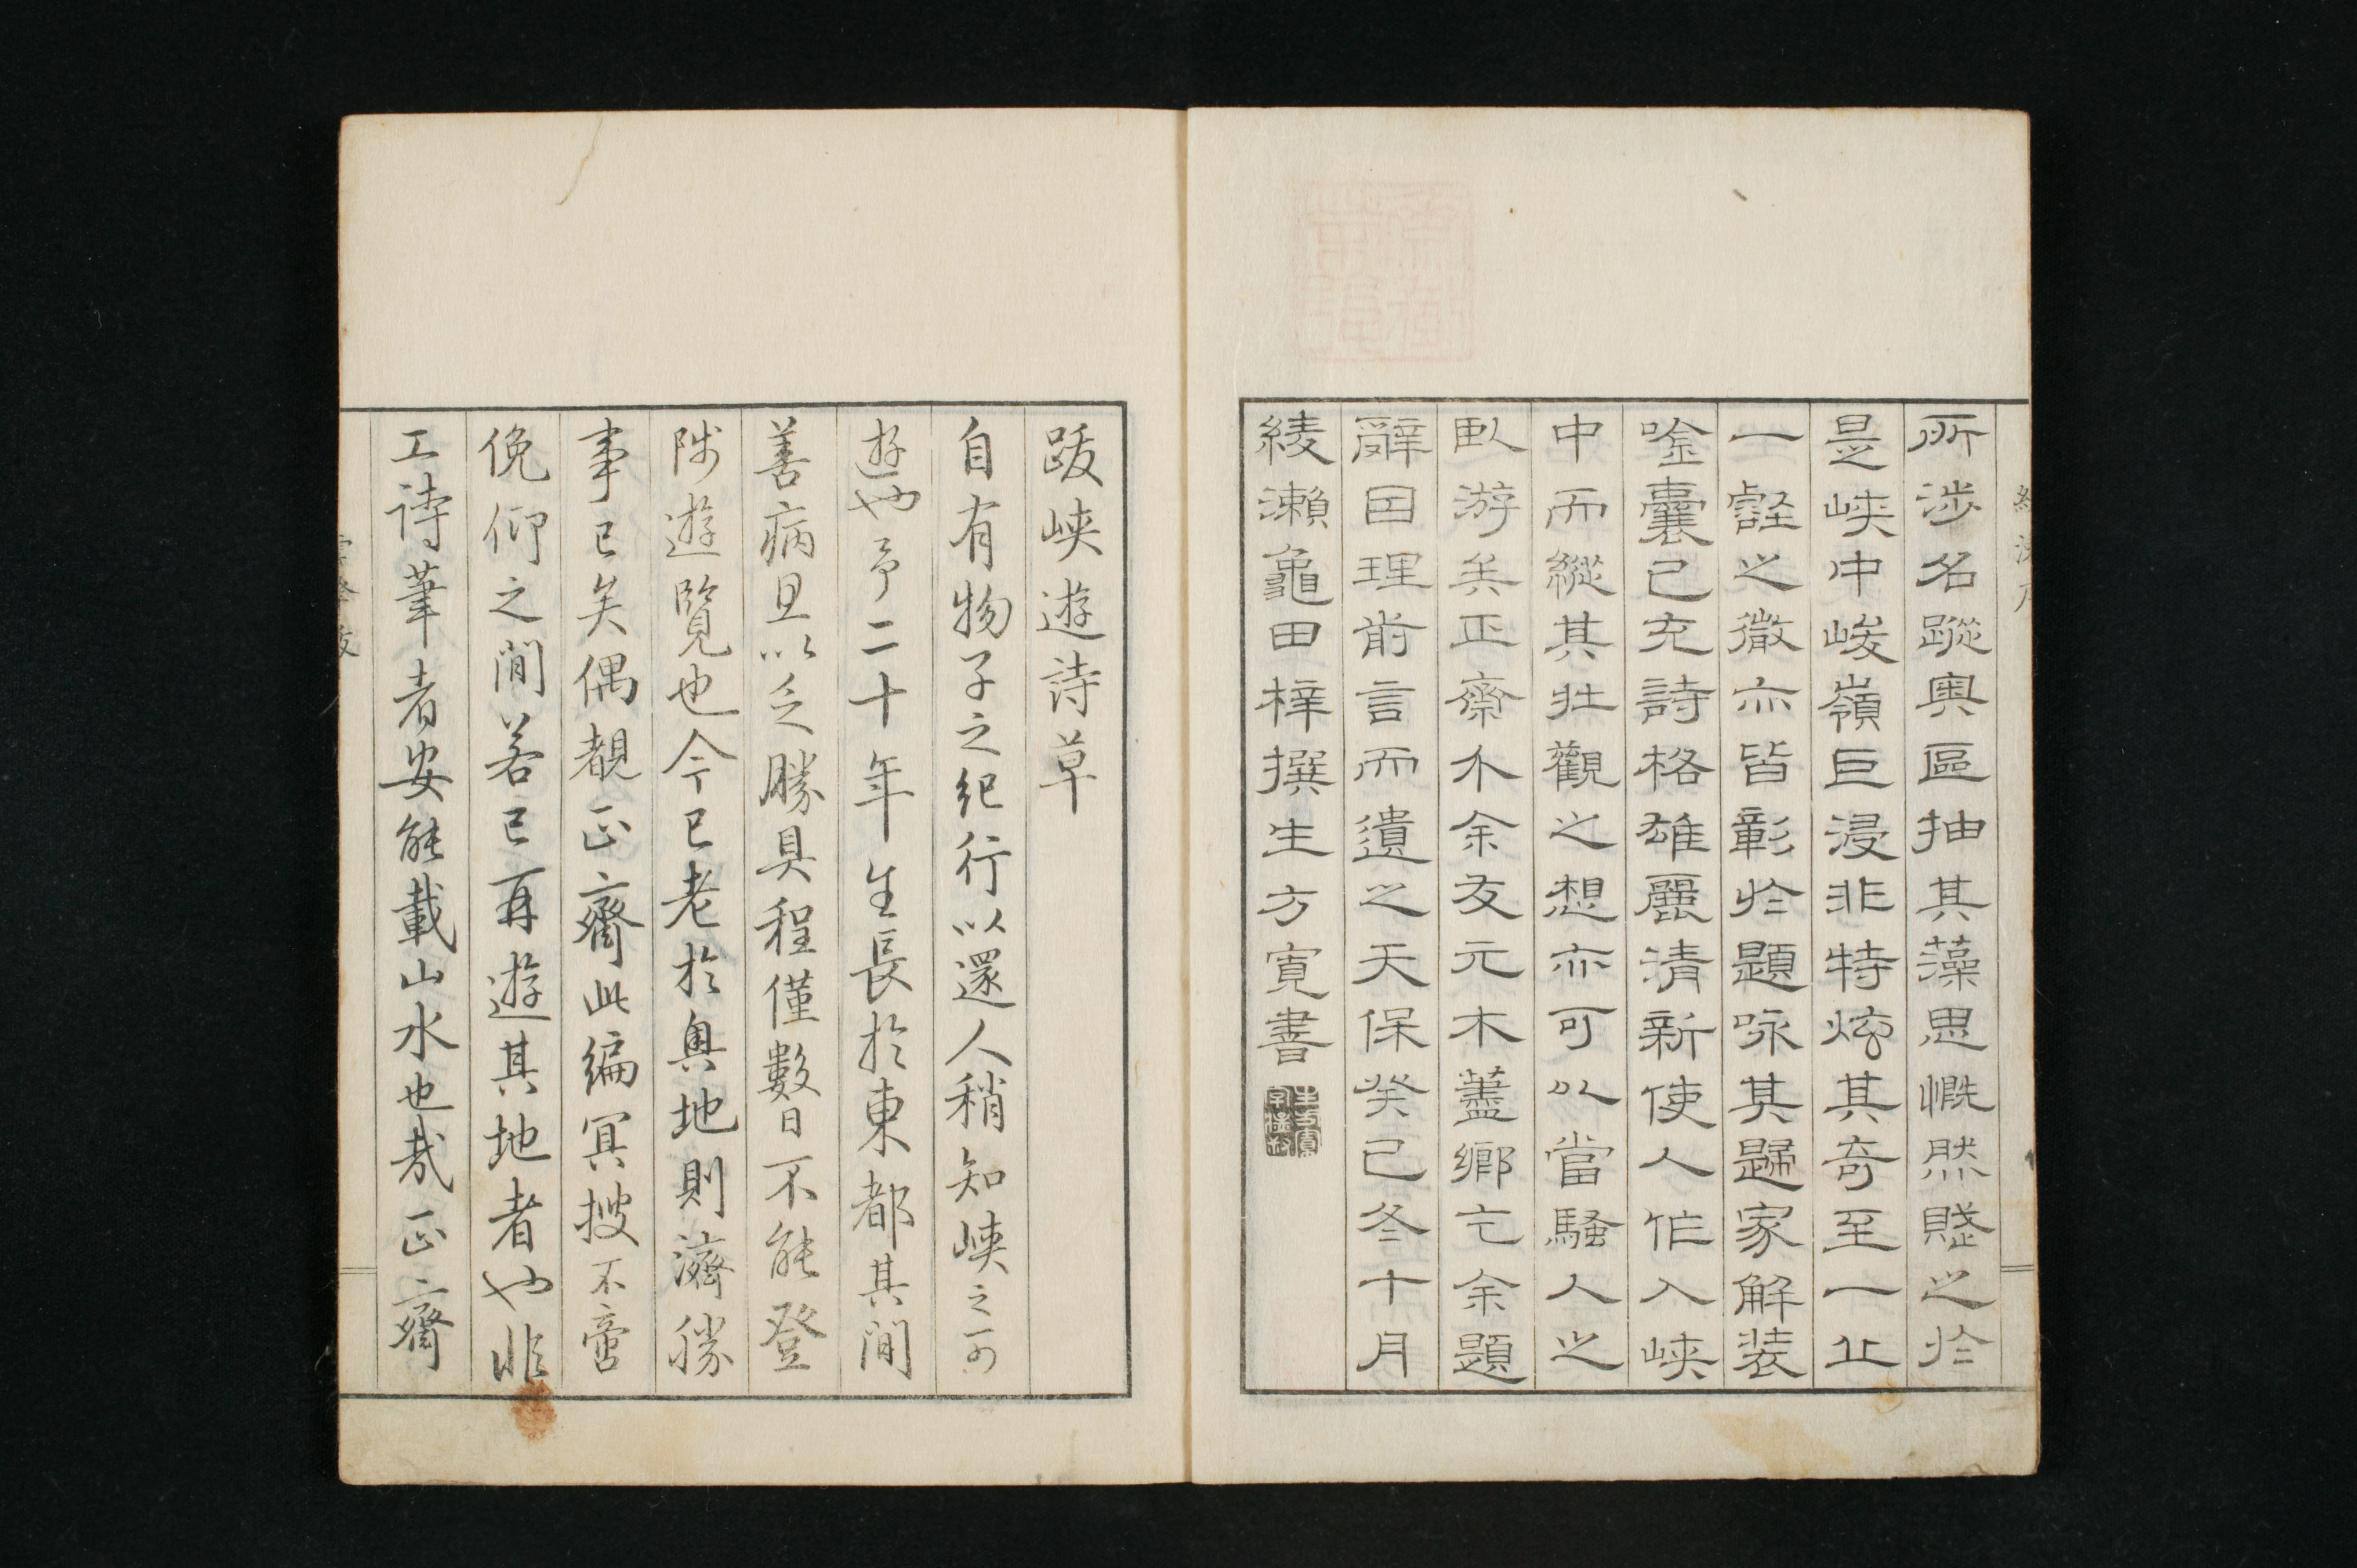 所涉名蹤奥區抽其藻思慨然賤之於
是峽中峻嶺巨浸非特炫其奇至一丠
一壑之微亦皆彰於題咏其歸家解装
唫囊已充詩格雄麗清新使人作入峽
中而縱其壯觀之想亦可以當騷人之
臥游矣正齋介余友元木藎鄉乞余題
辭因理前言而遺之天保癸巳冬十月
綾瀨龜田梓撰生方寛書
跋峽遊詩草
自有物子之紀行以還人稍知峽之可
遊也予二十年生長於東都其間
善病且以乏勝具程僅數日不能登
陟遊覽也今已老於奥地則濟勝
事已矣偶覩正齋此編冥搜不啻
俛仰之間若已再遊其地者也非
工詩筆者安能載山水也哉正齋